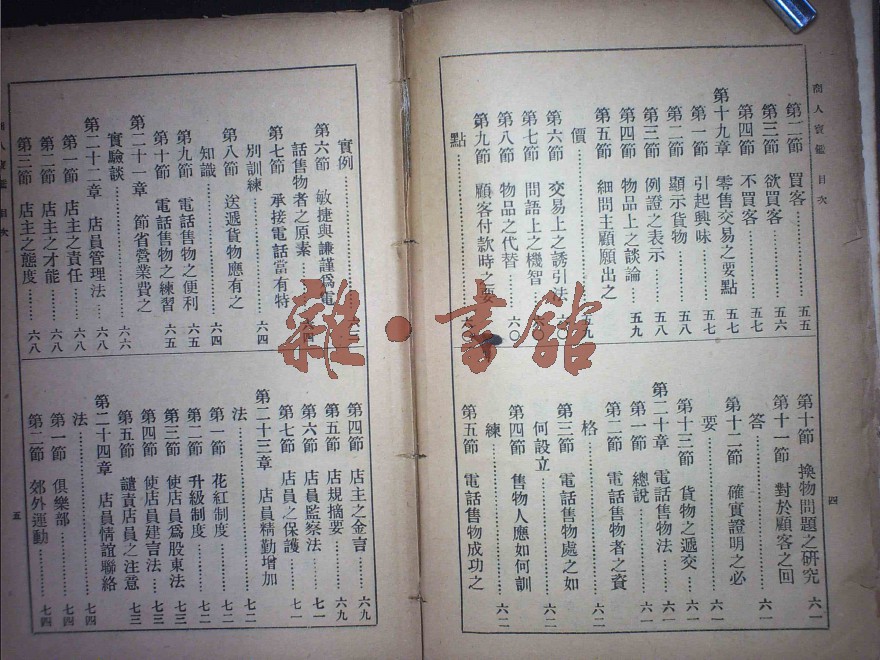 商人寶鑑 目次
第二節 買客……五五
第三節 欲買客……五六
第四節 不買客……五七
第十九章 零售交易之要點……五七
第一節 引起興味……五七
第二節 顯示貨物……五八
第三節 例證之表示……五八
第四節 物品上之談論……五九
第五節 細問主顧願出之
價……五九
第六節 交易上之誘引法……六〇
第七節 問語上之機智……六〇
第八節 物品之代替……六〇
第九節 顧客付款時之要
點……六〇
第十節 換物問題之研究……六一
第十一節 對於顧客之回
答……六一
第十二節 確實證明之必
要……六一
第十三節 貨物之遞交……六一
第二十章 電話售物法……六一
第一節 總說……六一
第二節 電話售物者之資
格……六二
第三節 電話售物處之如
何設立……六二
第四節 售物人應如何訓
練……六二
第五節 電話售物成功之
四
實例……
第六節 敏捷與謙謹爲電
話售物者之原素……六四
第七節 承接電話當有特
別訓練……六四
第八節 送遞貨物應有之
知識……六四
第九節 電話售物之便利……六五
第十節 電話售物之練習……六五
第二十一章 節省營業費之
實驗談……六六
第二十二章 店員管理法……六八
第一節 店主之責任……六八
第二節 店主之才能……六八
第三節 店主之態度……六八
第四節 店主之金言……六九
第五節 店規摘要……六九
第六節 店員監察法……七一
第七節 店員之保護……七一
第二十三章 店員精勤增加
法……七二
第一節 花紅制度……七二
第二節 升級制度……七二
第三節 使店員爲股東法……七三
第四節 使店員建言法……七三
第五節 譴責店員之注意……七三
第二十四章 店員情誼聯絡
法……七四
第一節 俱樂部……七四
第二節 郊外運動……七四
商人寶鑑 目次
五
雜·書館